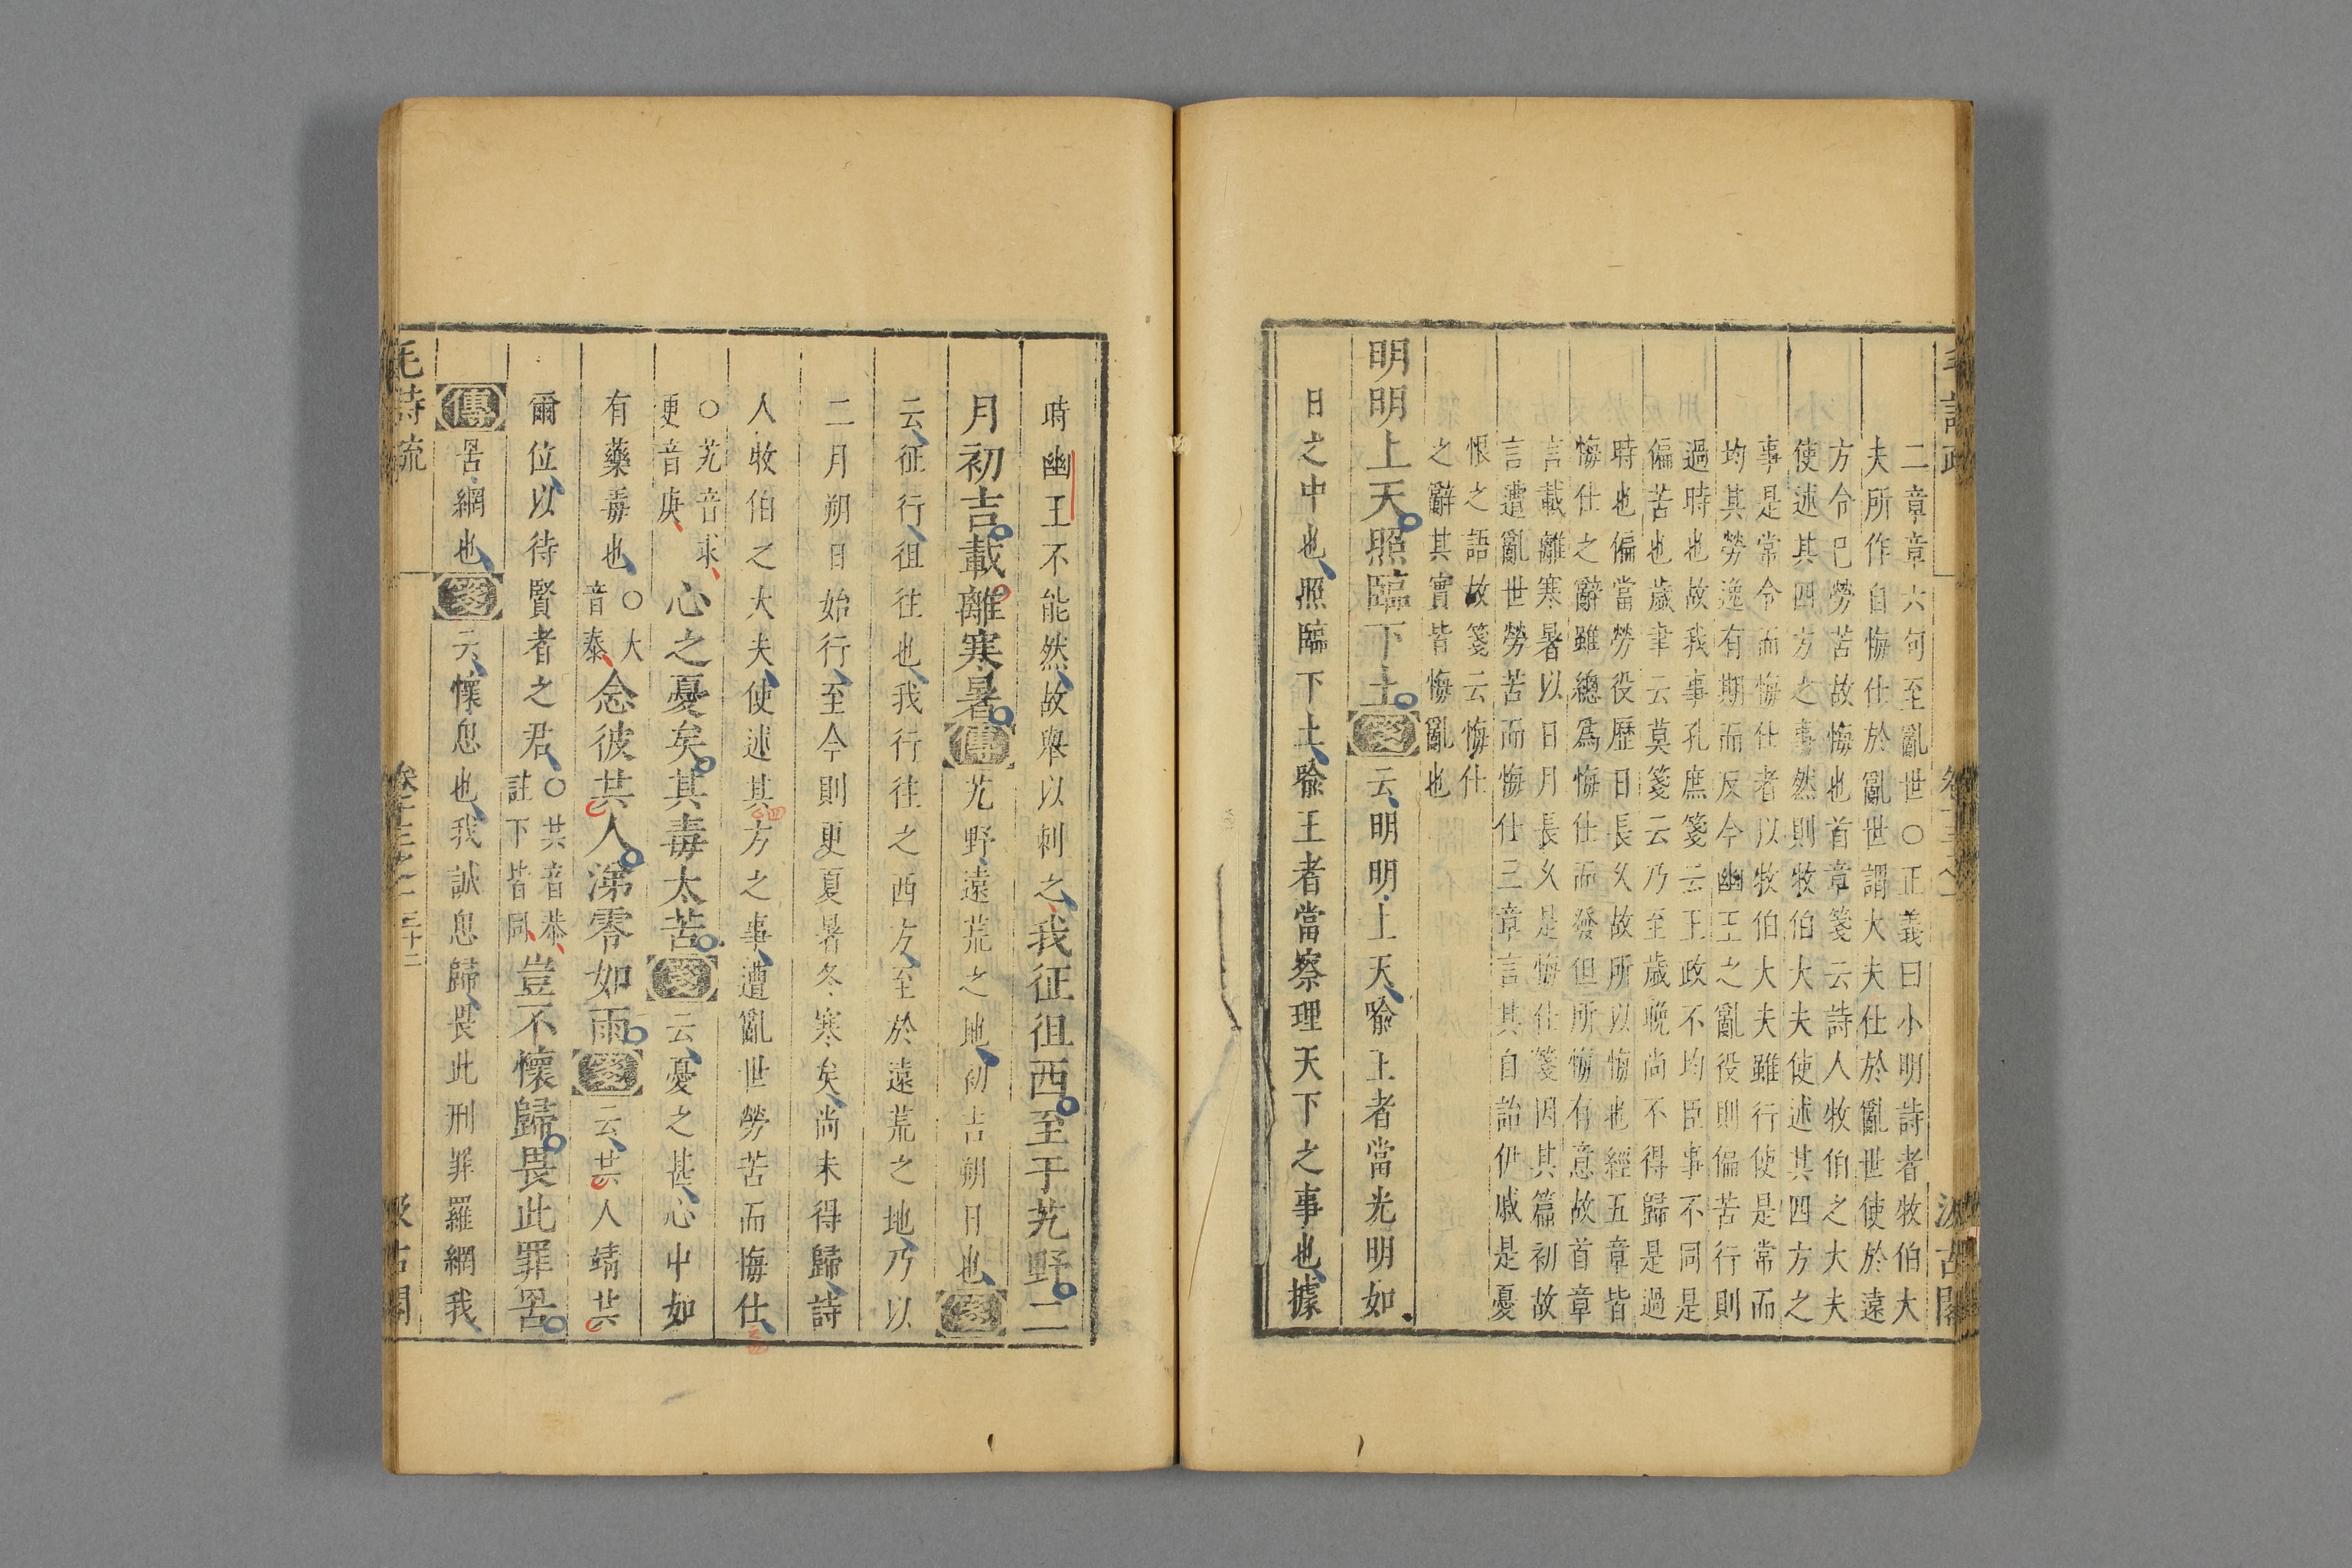 毛詩疏 卷十三之一 汲古閣
二章章六句至亂世○正義曰小明詩者牧伯大
夫所作自悔仕於亂世謂大夫仕於亂世使於遠
方令已勞苦故悔也首章箋云詩人牧伯之大夫
使述其四方之事然則牧伯大夫使述其四方之
事是常令而悔仕者以牧伯大夫雖行使是常而
均其勞逸有期而反今幽王之亂役則偏苦行則
過時也故我事孔庶箋云王政不均臣事不同是
偏苦也歲聿云莫箋云乃至歲晚尚不得歸是過
時也偏當勞役歷日長久故所以悔也經五章皆
悔仕之辭雖總爲悔仕而發但所悔有意故首章
言載離寒暑以日月長久是悔仕箋因其篇初故
言遭亂世勞苦而悔仕三章言其自詒伊戚是憂
恨之語故箋云悔仕
之辭其實皆悔亂也
明明上天照臨下土箋云明明上天喻王者當光明如
日之中也照臨下土喻王者當察理天下之事也據
時幽王不能然故舉以刺之我征徂西至于艽野二
月初吉載離寒暑傳艽野遠荒之地初吉朔日也箋
云征行徂往也我行往之西方至於遠荒之地乃以
二月朔日始行至今則更夏暑冬寒矣尚未得歸詩
人牧伯之大夫使述其方之事遭亂世勞苦而悔仕
○艽音求
更音庚
心之憂矣其毒太苦箋云憂之甚心中如
有藥毒也
○大
音泰
念彼共人涕零如雨箋云共人靖共
爾位以待賢者之君
○共音恭
註下皆同
豈不懷歸畏此罪罟
傳罟網也箋云懷思也我誠思歸畏此刑罪羅網我
毛詩疏 卷十三之一 三十二 汲古閣